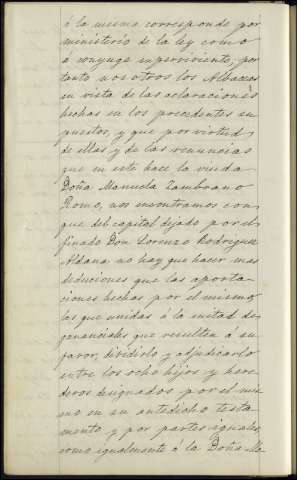 á la misma corresponde por
ministerio de la ley como
a conyuge superviviente; por
tanto nosotros los Albaceas
en vista de las aclaraciones
hechas en los precedentes su
puestos, y que por virtud
de ellas y de las renuncias
que en este hace la viuda
Doña Manuela Zambrano
Romo, nos encontramos con
que del capital dejado por el
finado Don Lorenzo Rodriguez
Aldana no hay que hacer mas
deduciones que las aporta-
ciones hechas por el mismo,
las que unidas á la mitad de
gananciales que resulten á su
favor, dividirlo y adjudicarlo
entre los ocho hijos y here
deros designados por el mis
mo en su antedicho testa
mento y por partes iguales
como igualmente á la Doña Ma